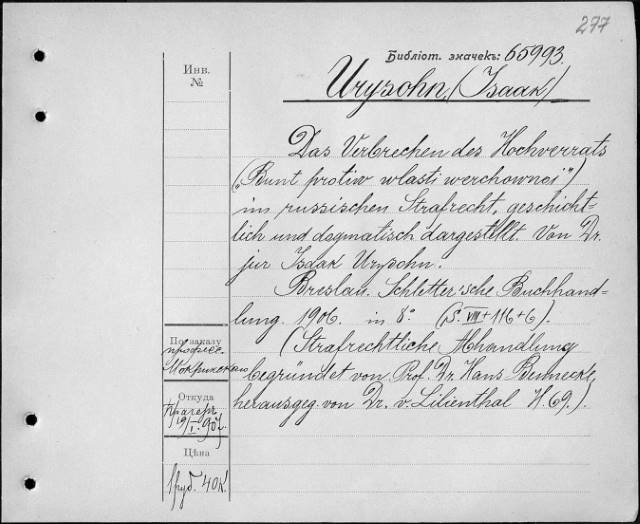 277
Библіот. значекъ: 65993.
Инв.
№
Urysohn, (Isaak)
Das Verbrechen des Hochverrats
(„Bunt protiw wlasti werchownoi")
im russischen Strafrecht, geschicht-
lich und dogmatisch dargestellt. Von Dr.
jur Isaak Urysohn.
Breslau. Schletter'sche Buchhand-
lung. 1906. in 8° (S. VIII + 116 + 6).
(Strafrechtliche Abhandlung
begründet von Prof. Dr. Hans Bennecke,
herausgeg. von Dr. v. Lilienthal H. 69.)
По заказу
профес.
Мокринскаго
Откуда
19/I 907.
Цѣна
1 руб. 40 к.